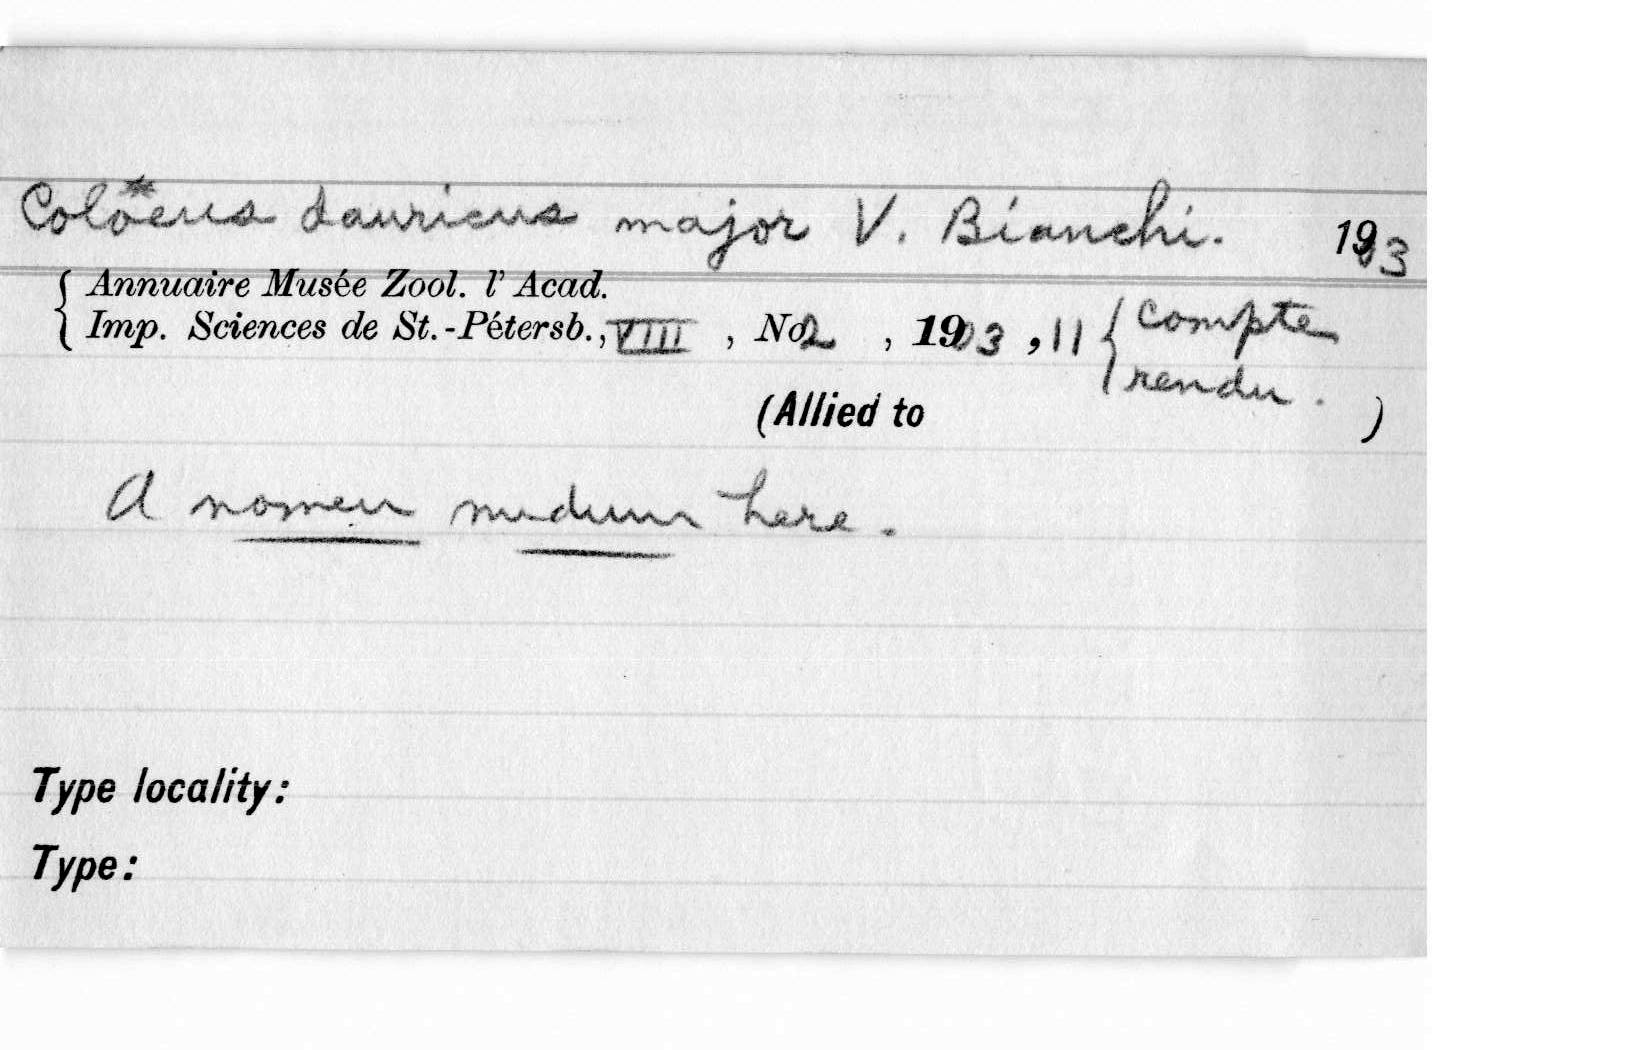 Coloeus dauricus major V. Bianchi. 1903
Annuaire Musée Zool. l' Acad.
Imp. Sciences de St.-Pétersb., VIII , No 2 , 1903 , 11 { compte
rendu .
(Allied to )
A nomen nudum here.
Type locality:
Type: